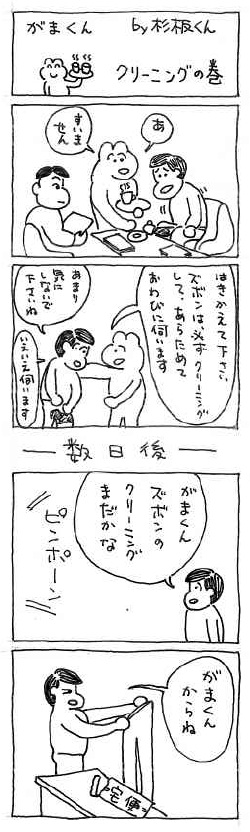 がまくん
by 杉板くん
クリーニングの巻
あ
すいま
せん
はきかえて下さい
ズボンは必ずクリーニング
して、あらためて
おわびに伺います
あまり
気に
しないで
下さいね
いえいえ伺います
数日後
がまくん
ズボンの
クリーニング
まだかな
ピンポーン
がまくん
からね
宅便